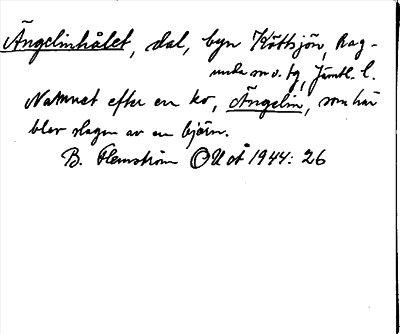 Ängelinhålet, dal, byn Köttsjön, Rag-
unda sn o. tg, Jämtl. l.
Namnet efter en ko, Ängelin, som här
blev slagen av en björn.
B. Flemström OUoÅ 1944: 26